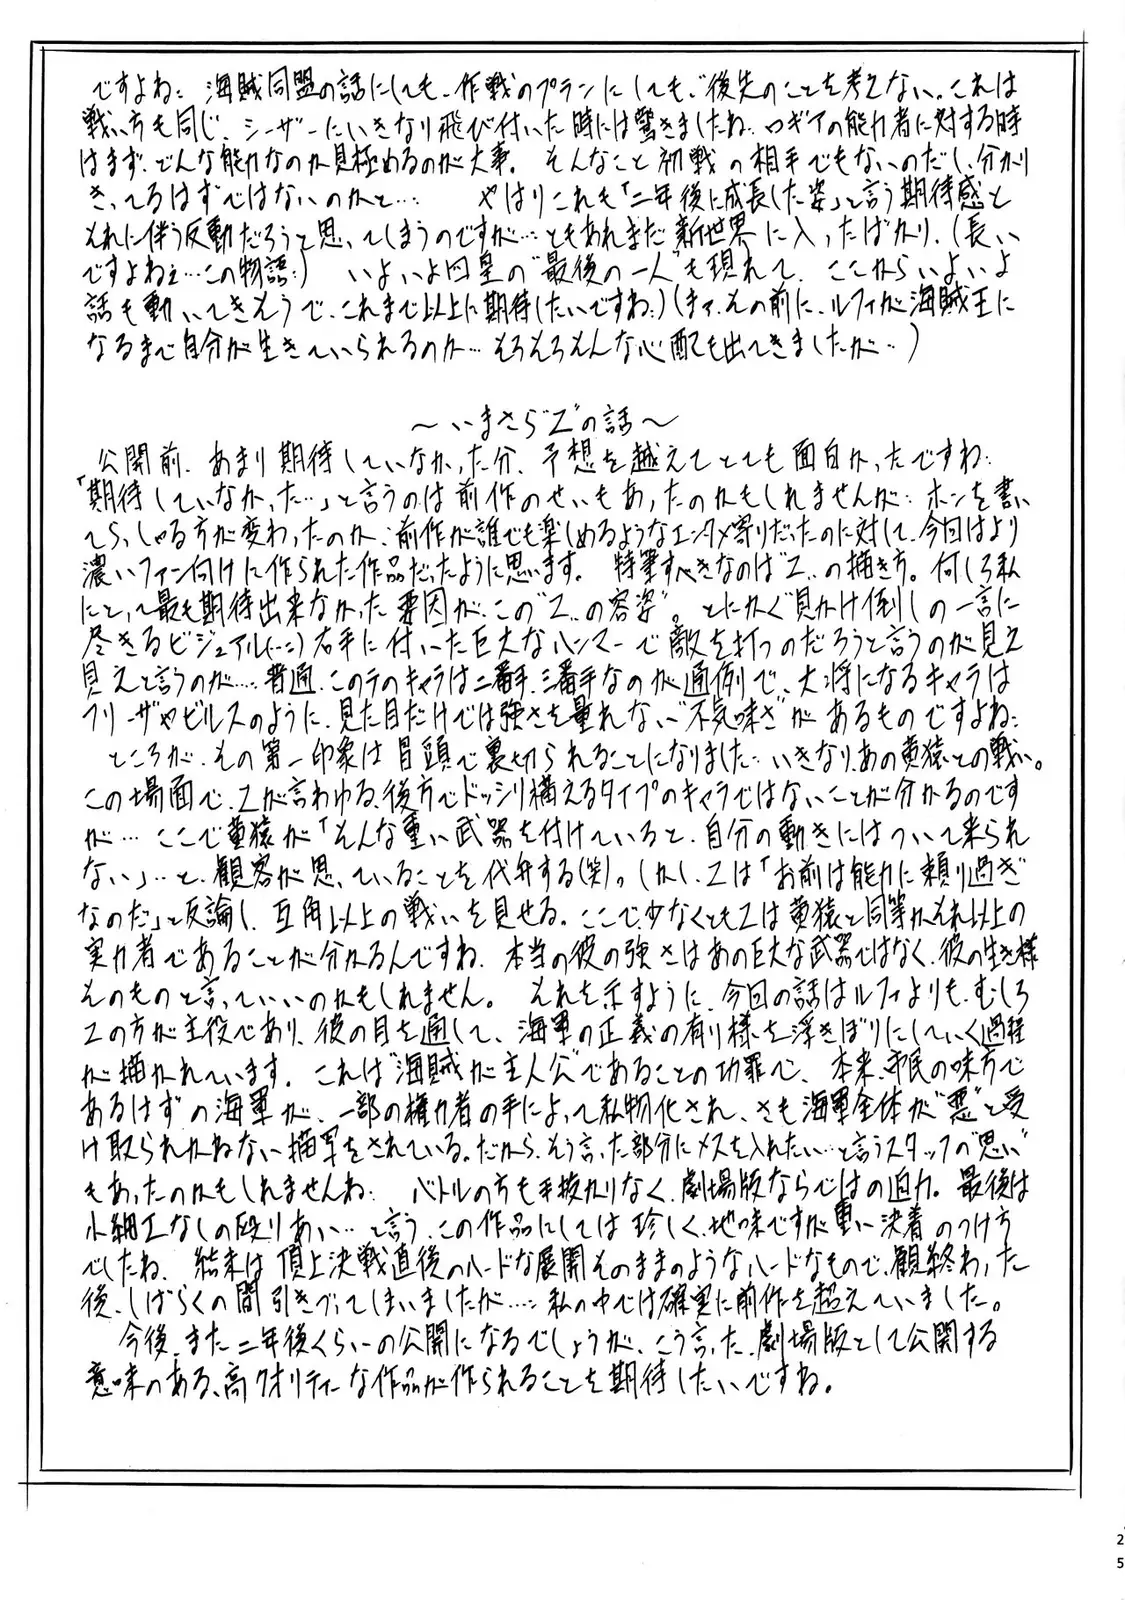 ですよね: 海賊同盟の話にしても、作戦のプランにしても、後先のことを考えない。これは
戦い方も同じ、シーザーにいきなり飛び付いた時には驚きましたね… ロギアの能力者に対する時
はまず、どんな能力なのか見極めるのが大事。 そんなこと初戦の相手でもないのだし、分かり
きってるはずではないのかと… やはりこれも「二年後に成長した姿」と言う期待感と
それに伴う反動だろうと思ってしまうのですが…ともあれまだ新世界に入ったばかり、(長い
ですよねぇ…この物語:) いよいよ四皇の“最後の一人”も現れて、ここからいよいよ
話も動いてきそうで、これまで以上に期待したいですね:)(まァ、その前に、ルフィが海賊王に
なるまで自分が生きていられるのか…そろそろそんな心配も出てきましたが…)
〜いまさら“Z”の話〜
公開前、あまり期待していなかった分、予想を越えてとても面白かったですね:
「期待していなかった…」と言うのは前作のせいもあったのかもしれませんが… ホンを書い
てらっしゃる方が変わったのか、前作が誰でも楽しめるようなエンタメ寄りだったのに対して、今回はより
濃いファン向けに作られた作品だったように思います。 特筆すべきなのは“Z”の描き方。何しろ私
にとって最も期待出来なかった要因が、この“Z”の容姿”。とにかく“見かけ倒し”の一言に
尽きるビジュアル(…:)右手に付いた巨大なハンマーで敵を打つのだろうと言うのが見え
見えと言うのが…: 普通、このテのキャラは二番手、三番手なのが通例で、大将になるキャラは
フリーザやビルスのように、見た目だけでは強さを量れない“不気味さ”があるものですよね:
ところが、その第一印象は冒頭で裏切られることになりました… いきなり、あの黄猿との戦い。
この場面で、Zが言わゆる、後方でドッシリ構えるタイプのキャラではないことが分かるのです
が… ここで黄猿が「そんな重い武器を付けていると、自分の動きにはついて来られ
ない」…と、観客が思っていることを代弁する(笑)。しかし、Zは「お前は能力に頼り過ぎ
なのだ」と反論し、互角以上の戦いを見せる。ここで少なくともZは黄猿と同等かそれ以上の
実力者であることが分かるんですね、本当の彼の強さはあの巨大な武器ではなく、彼の生き様
そのものと言っていいのかもしれません。 それを示すように、今回の話はルフィよりも、むしろ
Zの方が主役であり、彼の目を通して、海軍の正義の有り様を浮きぼりにしていく過程
が描かれています。これは“海賊が主人公”であることの功罪で、本来、市民の味方で
あるはずの海軍が、一部の権力者の手によって私物化され、さも海軍全体が“悪”と受
け取られかねない描写をされている。だから、そう言った部分にメスを入れたい…と言うスタッフの“思い”
もあったのかもしれませんね: バトルの方も手抜かりなく、劇場版ならではの迫力。最後は
小細工なしの殴りあい…と言う、この作品にしては珍しく、地味ですが重い決着のつけ方
でしたね、 結末は頂上決戦直後のハードな展開そのままのようなハードなもので、観終わった
後、しばらくの間引きずってしまいましたが…: 私の中では確実に前作を超えていました。
今後、また二年後くらいの公開になるでしょうが、こう言った、劇場版として公開する
意味のある、高クオリティーな作品が作られることを期待したいですね。
25